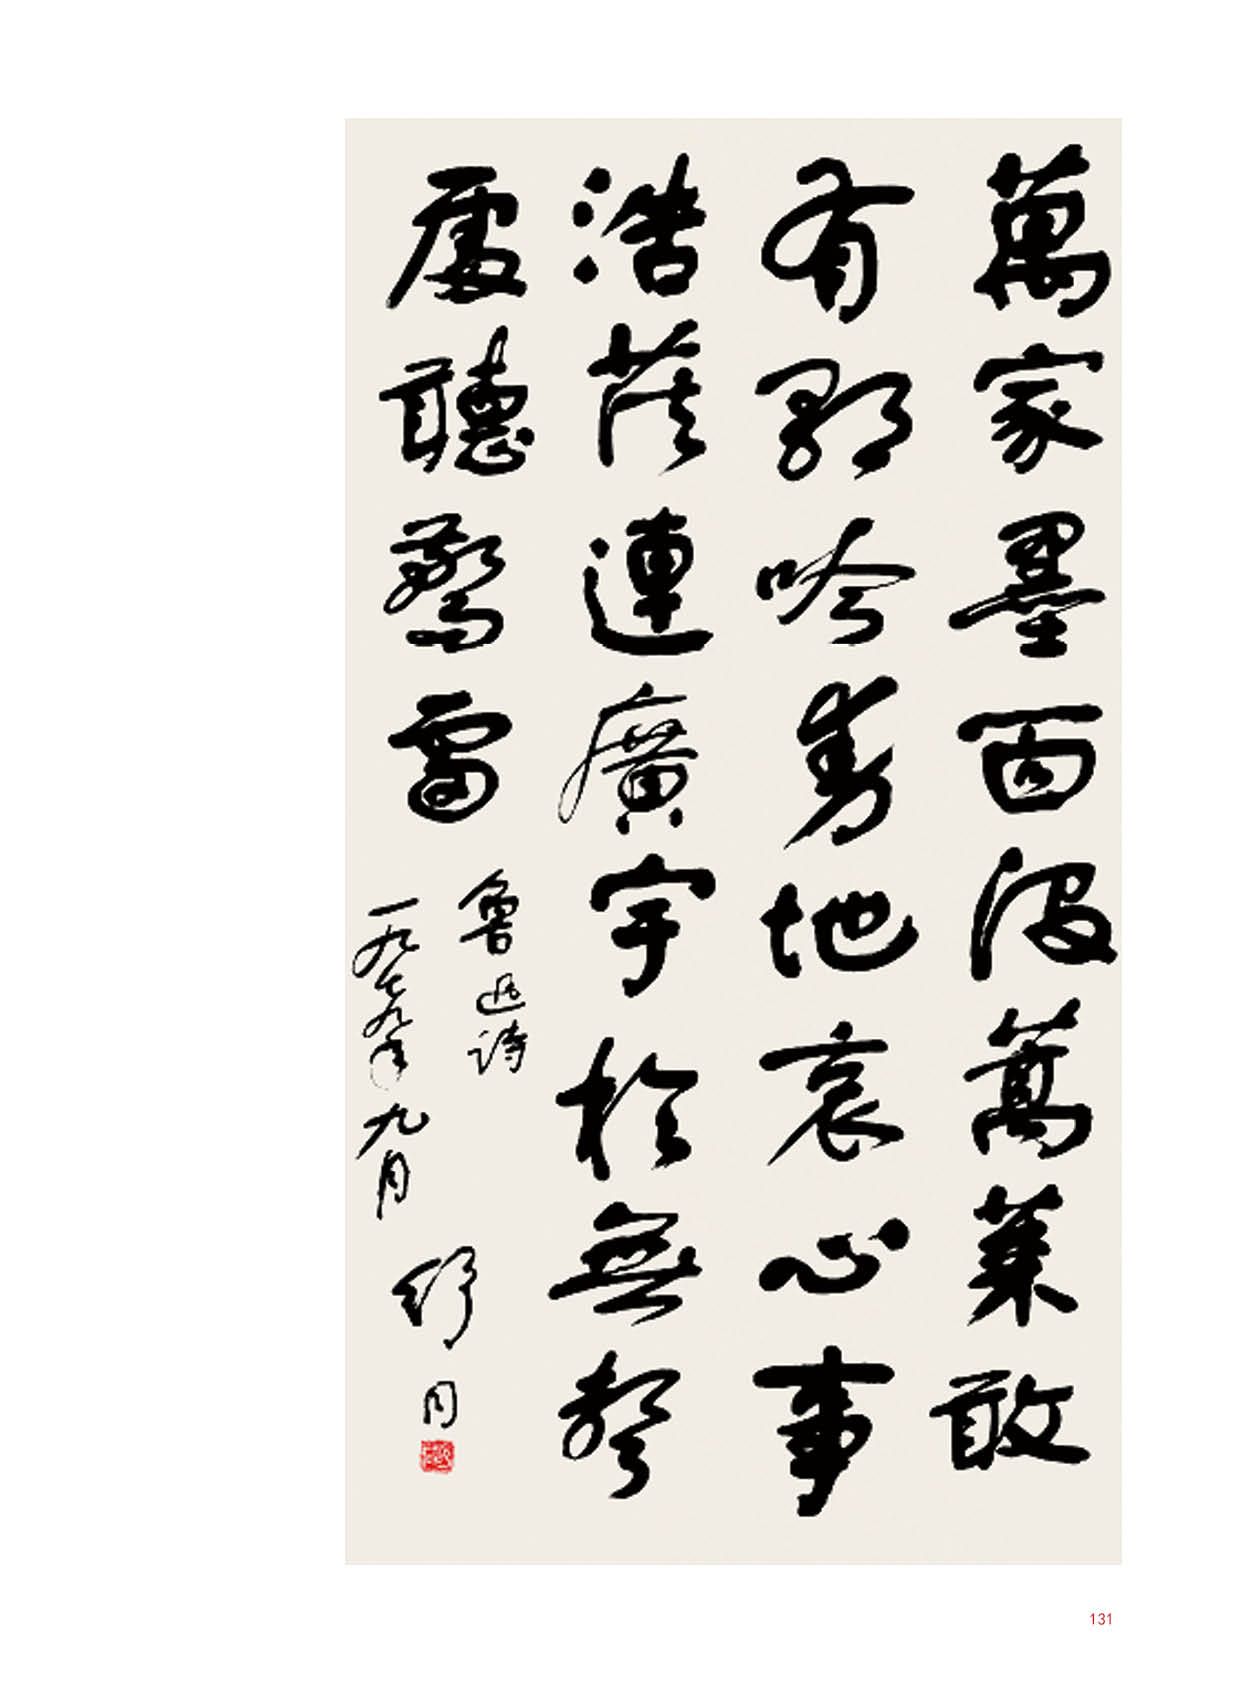 萬家墨面沒蒿萊敢
有歌吟動地哀心事
浩茫連廣宇於無聲
處聽驚雷
魯迅詩
一九七九年九月
舒同
131